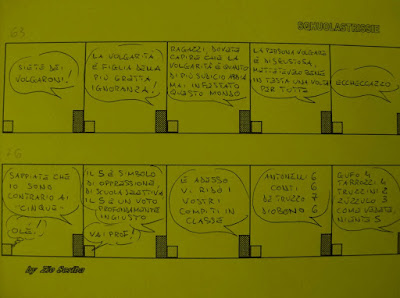 SQKUOLASTRISSIE
63
SIETE DEI
VOLGARONI!
LA VOLGARITÀ
È FIGLIA DELLA
PIÙ GRETTA
IGNORANZA!
RAGAZZI, DOVETE
CAPIRE CHE LA
VOLGARITÀ È QUANTO
DI PIÙ SUDICIO ABBIA
MAI INFESTATO
QUESTO MONDO
LA PERSONA VOLGARE
È DISGUSTOSA,
METTETEVELO BENE
IN TESTA UNA VOLTA
PER TUTTE
ECCHECCAZZO
76
SAPPIATE CHE
IO SONO
CONTRARIO AI
"CINQUE"
OLÈ!
IL 5 È SIMBOLO
DI OPPRESSIONE
DI SCUOLA
IL 5 È UN VOTO
PROFONDAMENTE
INGIUSTO
VAI PROF!
E ADESSO
VI RIDO I
VOSTRI
COMPITI IN
CLASSE
ANTONELLI 6
CONTI 6
DETRUZZO 7
DIOBONO 6
GUFO 4
TARROZZI 4
TRUZZINI 2
ZUZZULO 3
COME VEDETE
NIENTE 5
by Zio Scriba